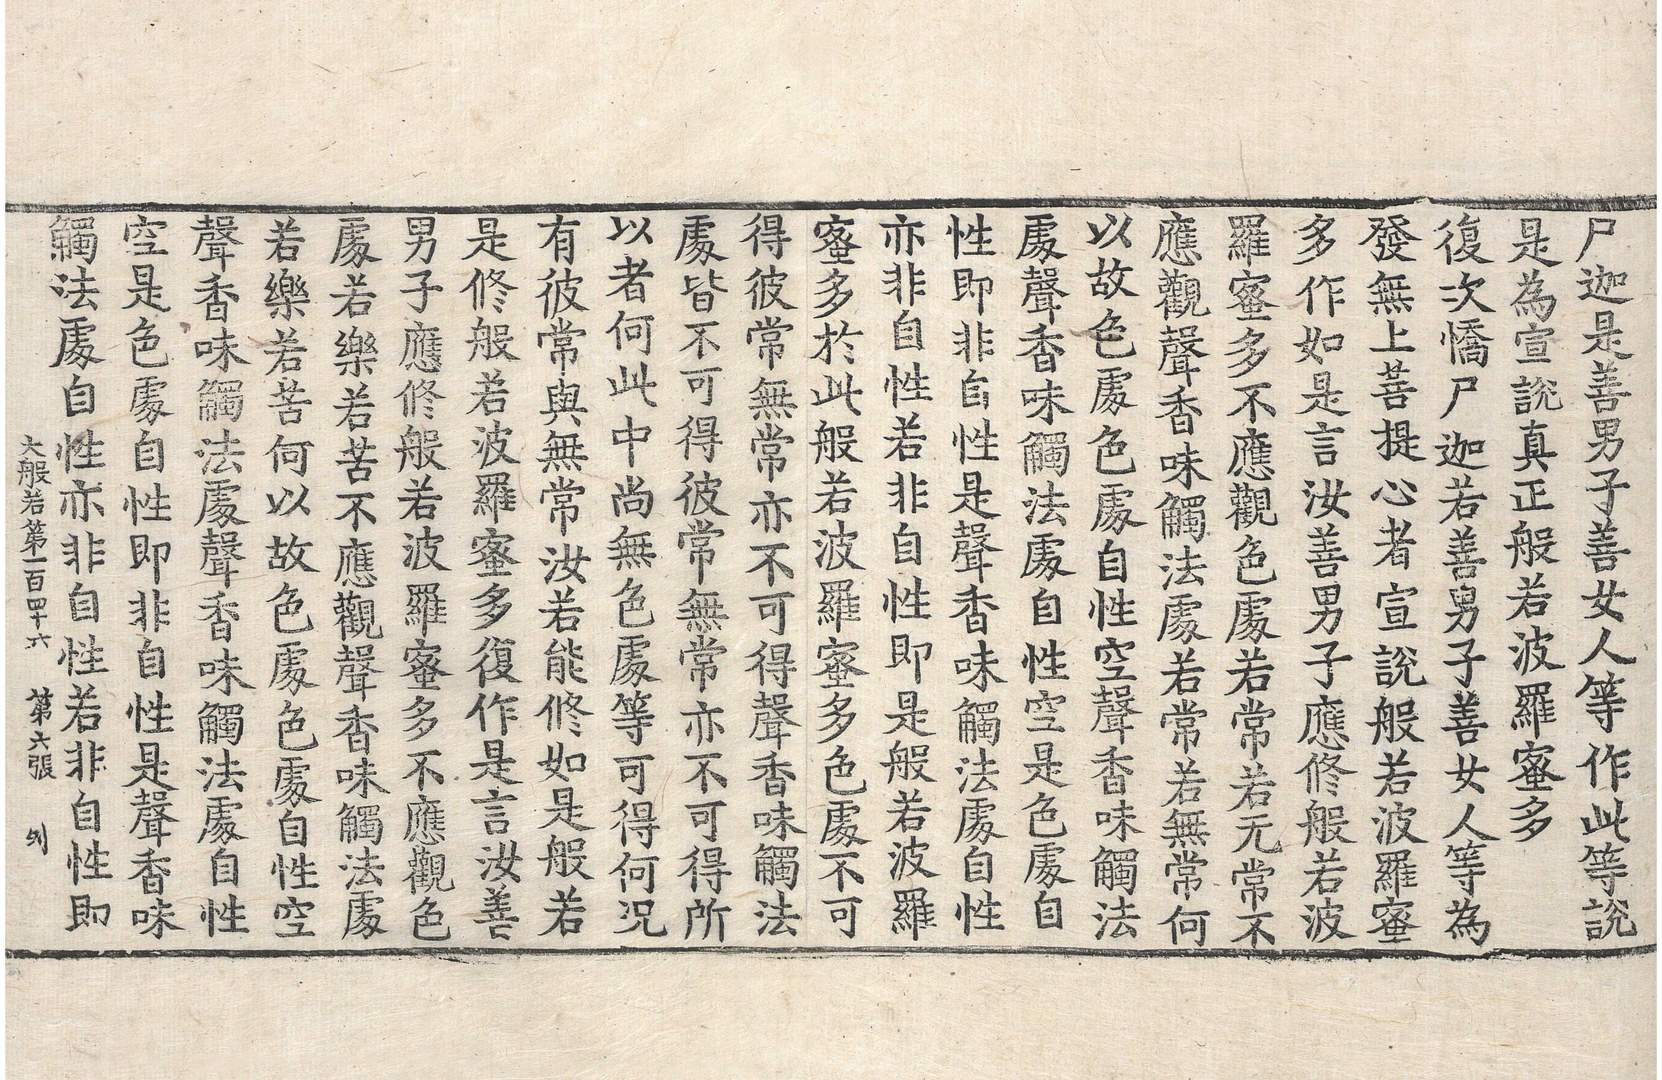 尸迦是善男子善女人等作此等說
是為宣說真正般若波羅蜜多
復次憍尸迦若善男子善女人等為
發無上菩提心者宣說般若波羅蜜
多作如是言汝善男子應修般若波
羅蜜多不應觀色處若常若无常不
應觀聲香味觸法處若常若無常何
以故色處色處自性空聲香味觸法
處聲香味觸法處自性空是色處自
性即非自性是聲香味觸法處自性
亦非自性若非自性即是般若波羅
蜜多於此般若波羅蜜多色處不可
得彼常無常亦不可得聲香味觸法
處皆不可得彼常無常亦不可得所
以者何此中尚無色處等可得何況
有彼常與無常汝若能修如是般若
是修般若波羅蜜多復作是言汝善
男子應修般若波羅蜜多不應觀色
處若樂若苦不應觀聲香味觸法處
若樂若苦何以故色處色處自性空
聲香味觸法處聲香味觸法處自性
空是色處自性即非自性是聲香味
觸法處自性亦非自性若非自性即
大般若第一百四十六 第六張 列